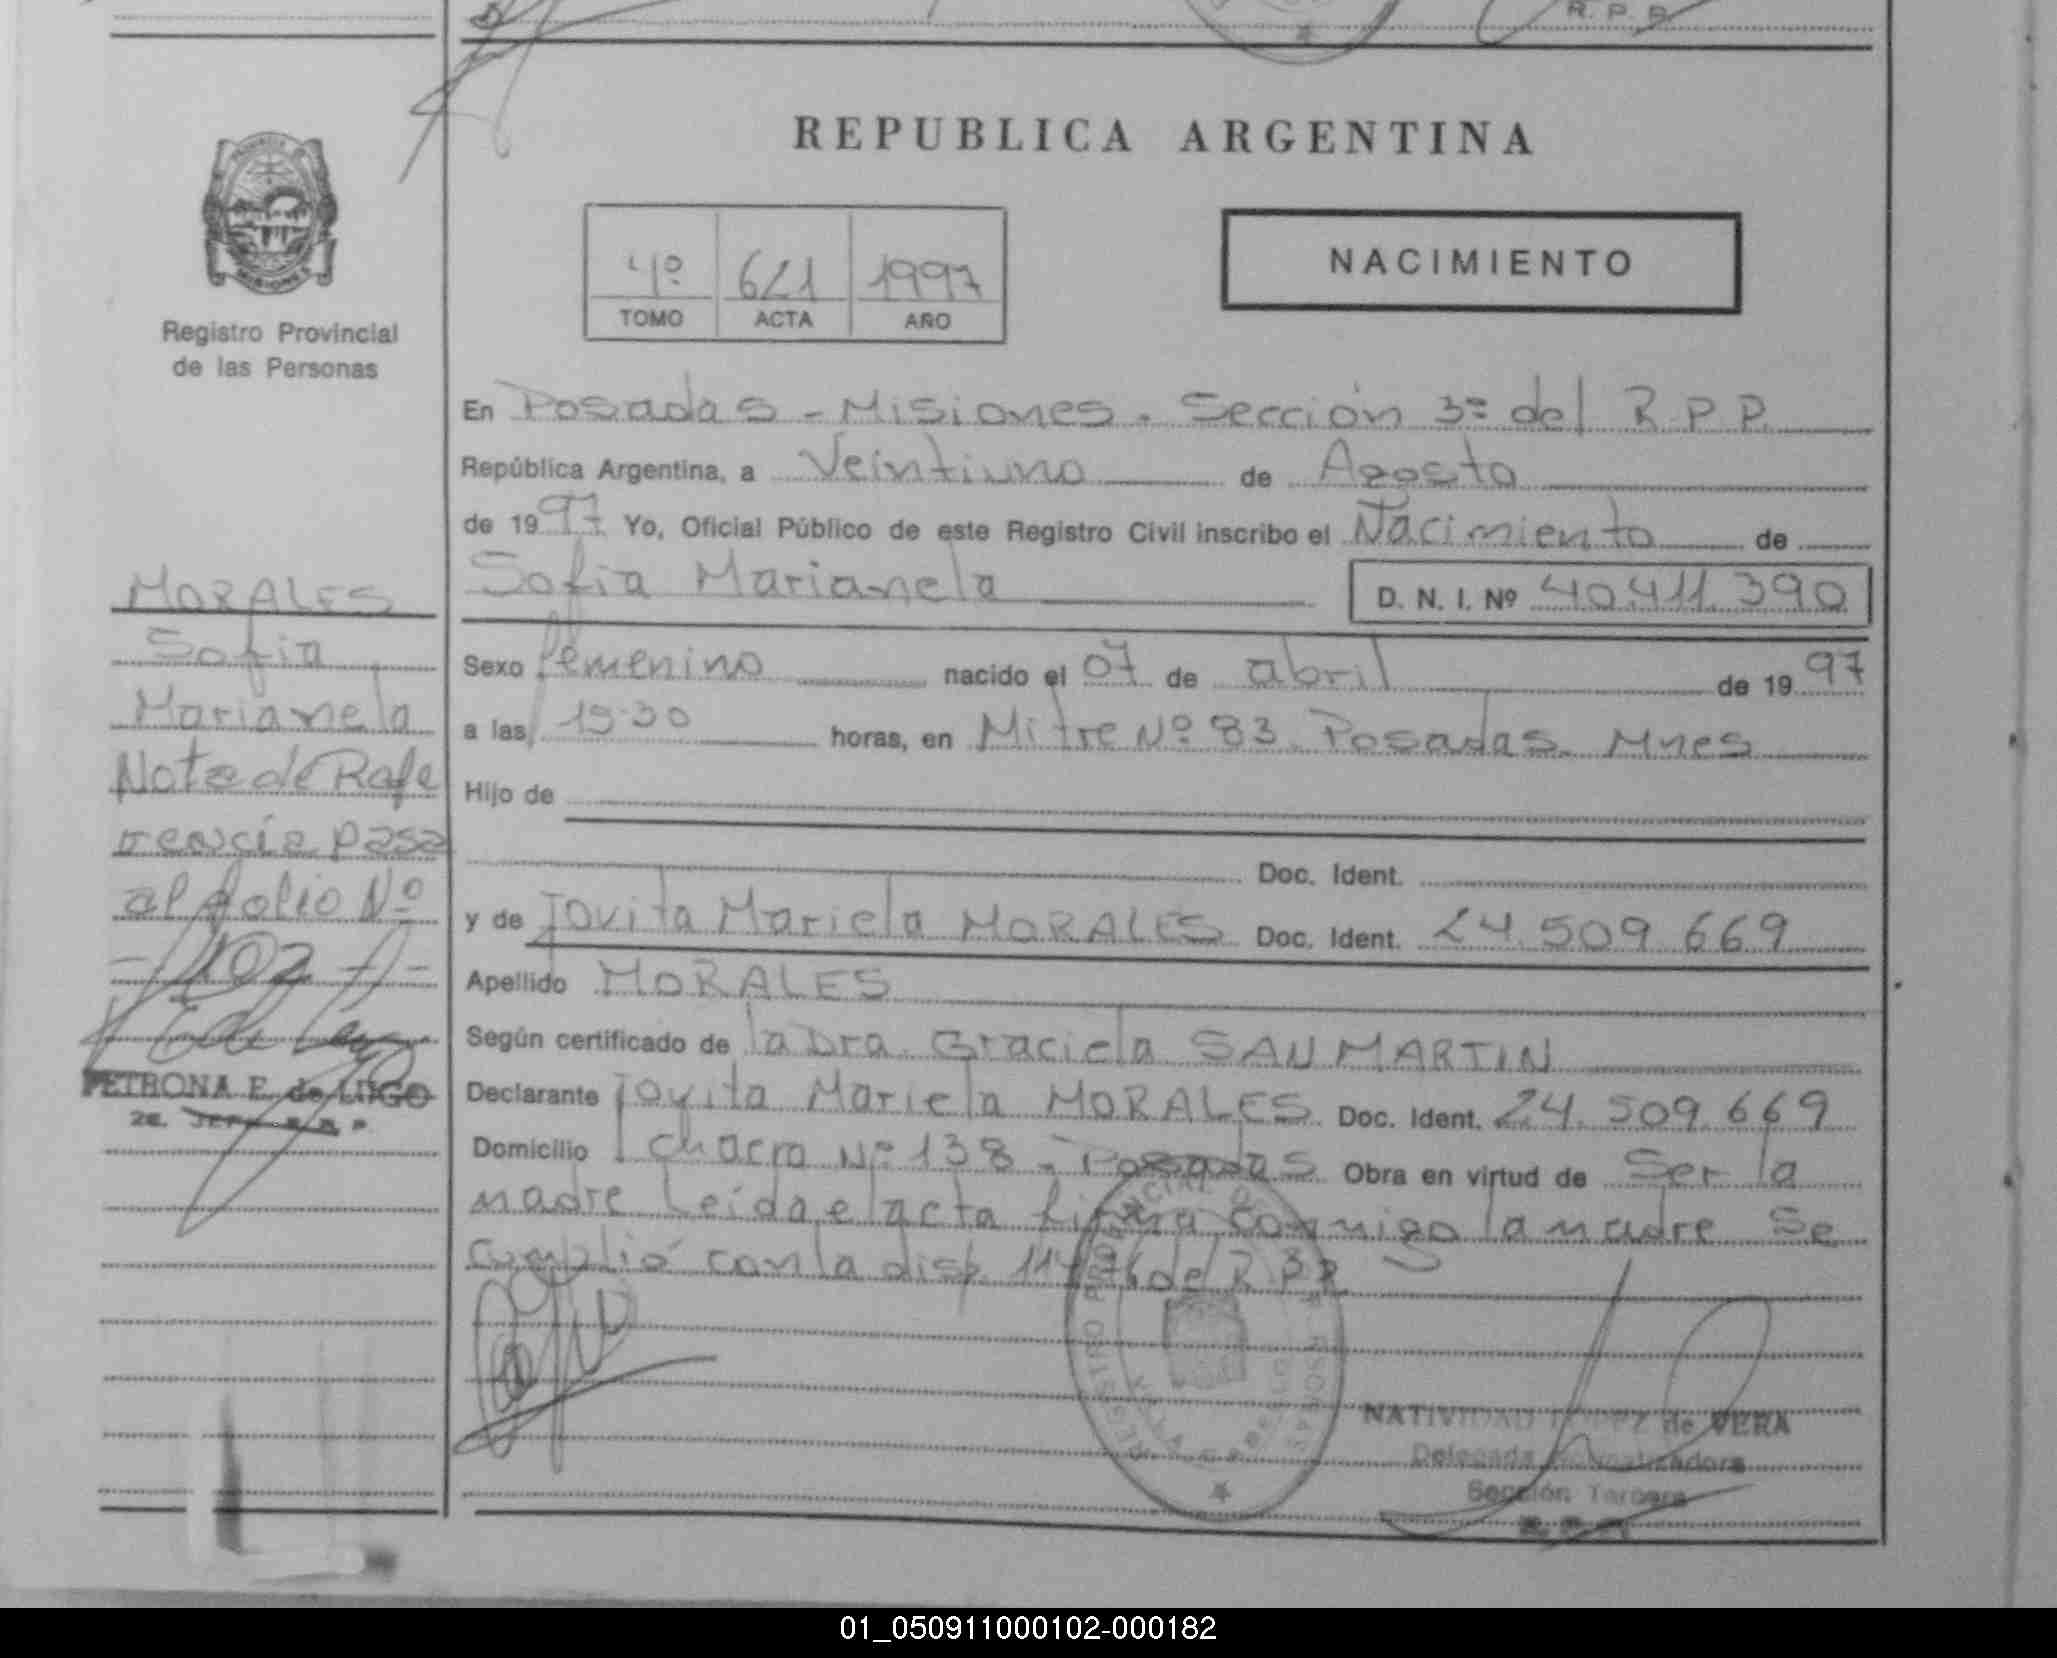 R. P. P.
REPUBLICA ARGENTINA
PROVINCIA DE
MISIONES
Registro Provincial
de las Personas
4º 621 1997
TOMO ACTA AÑO
NACIMIENTO
En Posadas - Misiones. Sección 3ª del R.P.P.
República Argentina, a Veintiuno de Agosto
de 1997 Yo, Oficial Público de este Registro Civil inscribo el Nacimiento de
Sofia Marianela D. N. I. Nº 40.411.390
Sexo femenino nacido el 07 de abril de 1997
a las 19:30 horas, en Mitre Nº 83. Posadas. Mnes
Hijo de
Doc. Ident.
y de Jovita Mariela MORALES Doc. Ident. 24.509.669
Apellido MORALES
Según certificado de la Dra. Graciela SAN MARTIN
Declarante Jovita Mariela MORALES. Doc. Ident. 24.509.669
Domicilio Chacra Nº 138 - Posadas Obra en virtud de Ser la
madre Leida el acta firma conmigo la madre Se
cumplió con la disp. 114/76 del R.P.P.
MORALES
Sofia
Marianela
Nota de Refe
rencia pasa
al folio Nº
- 102 -
PETRONA E. de LUGO
2a. JEFE R.R.P.
REGISTRO PROVINCIAL DE LAS PERSONAS
NATIVIDAD LOPEZ de VERA
Delegada
Sección Tercera
R.P.P.
01_050911000102-000182